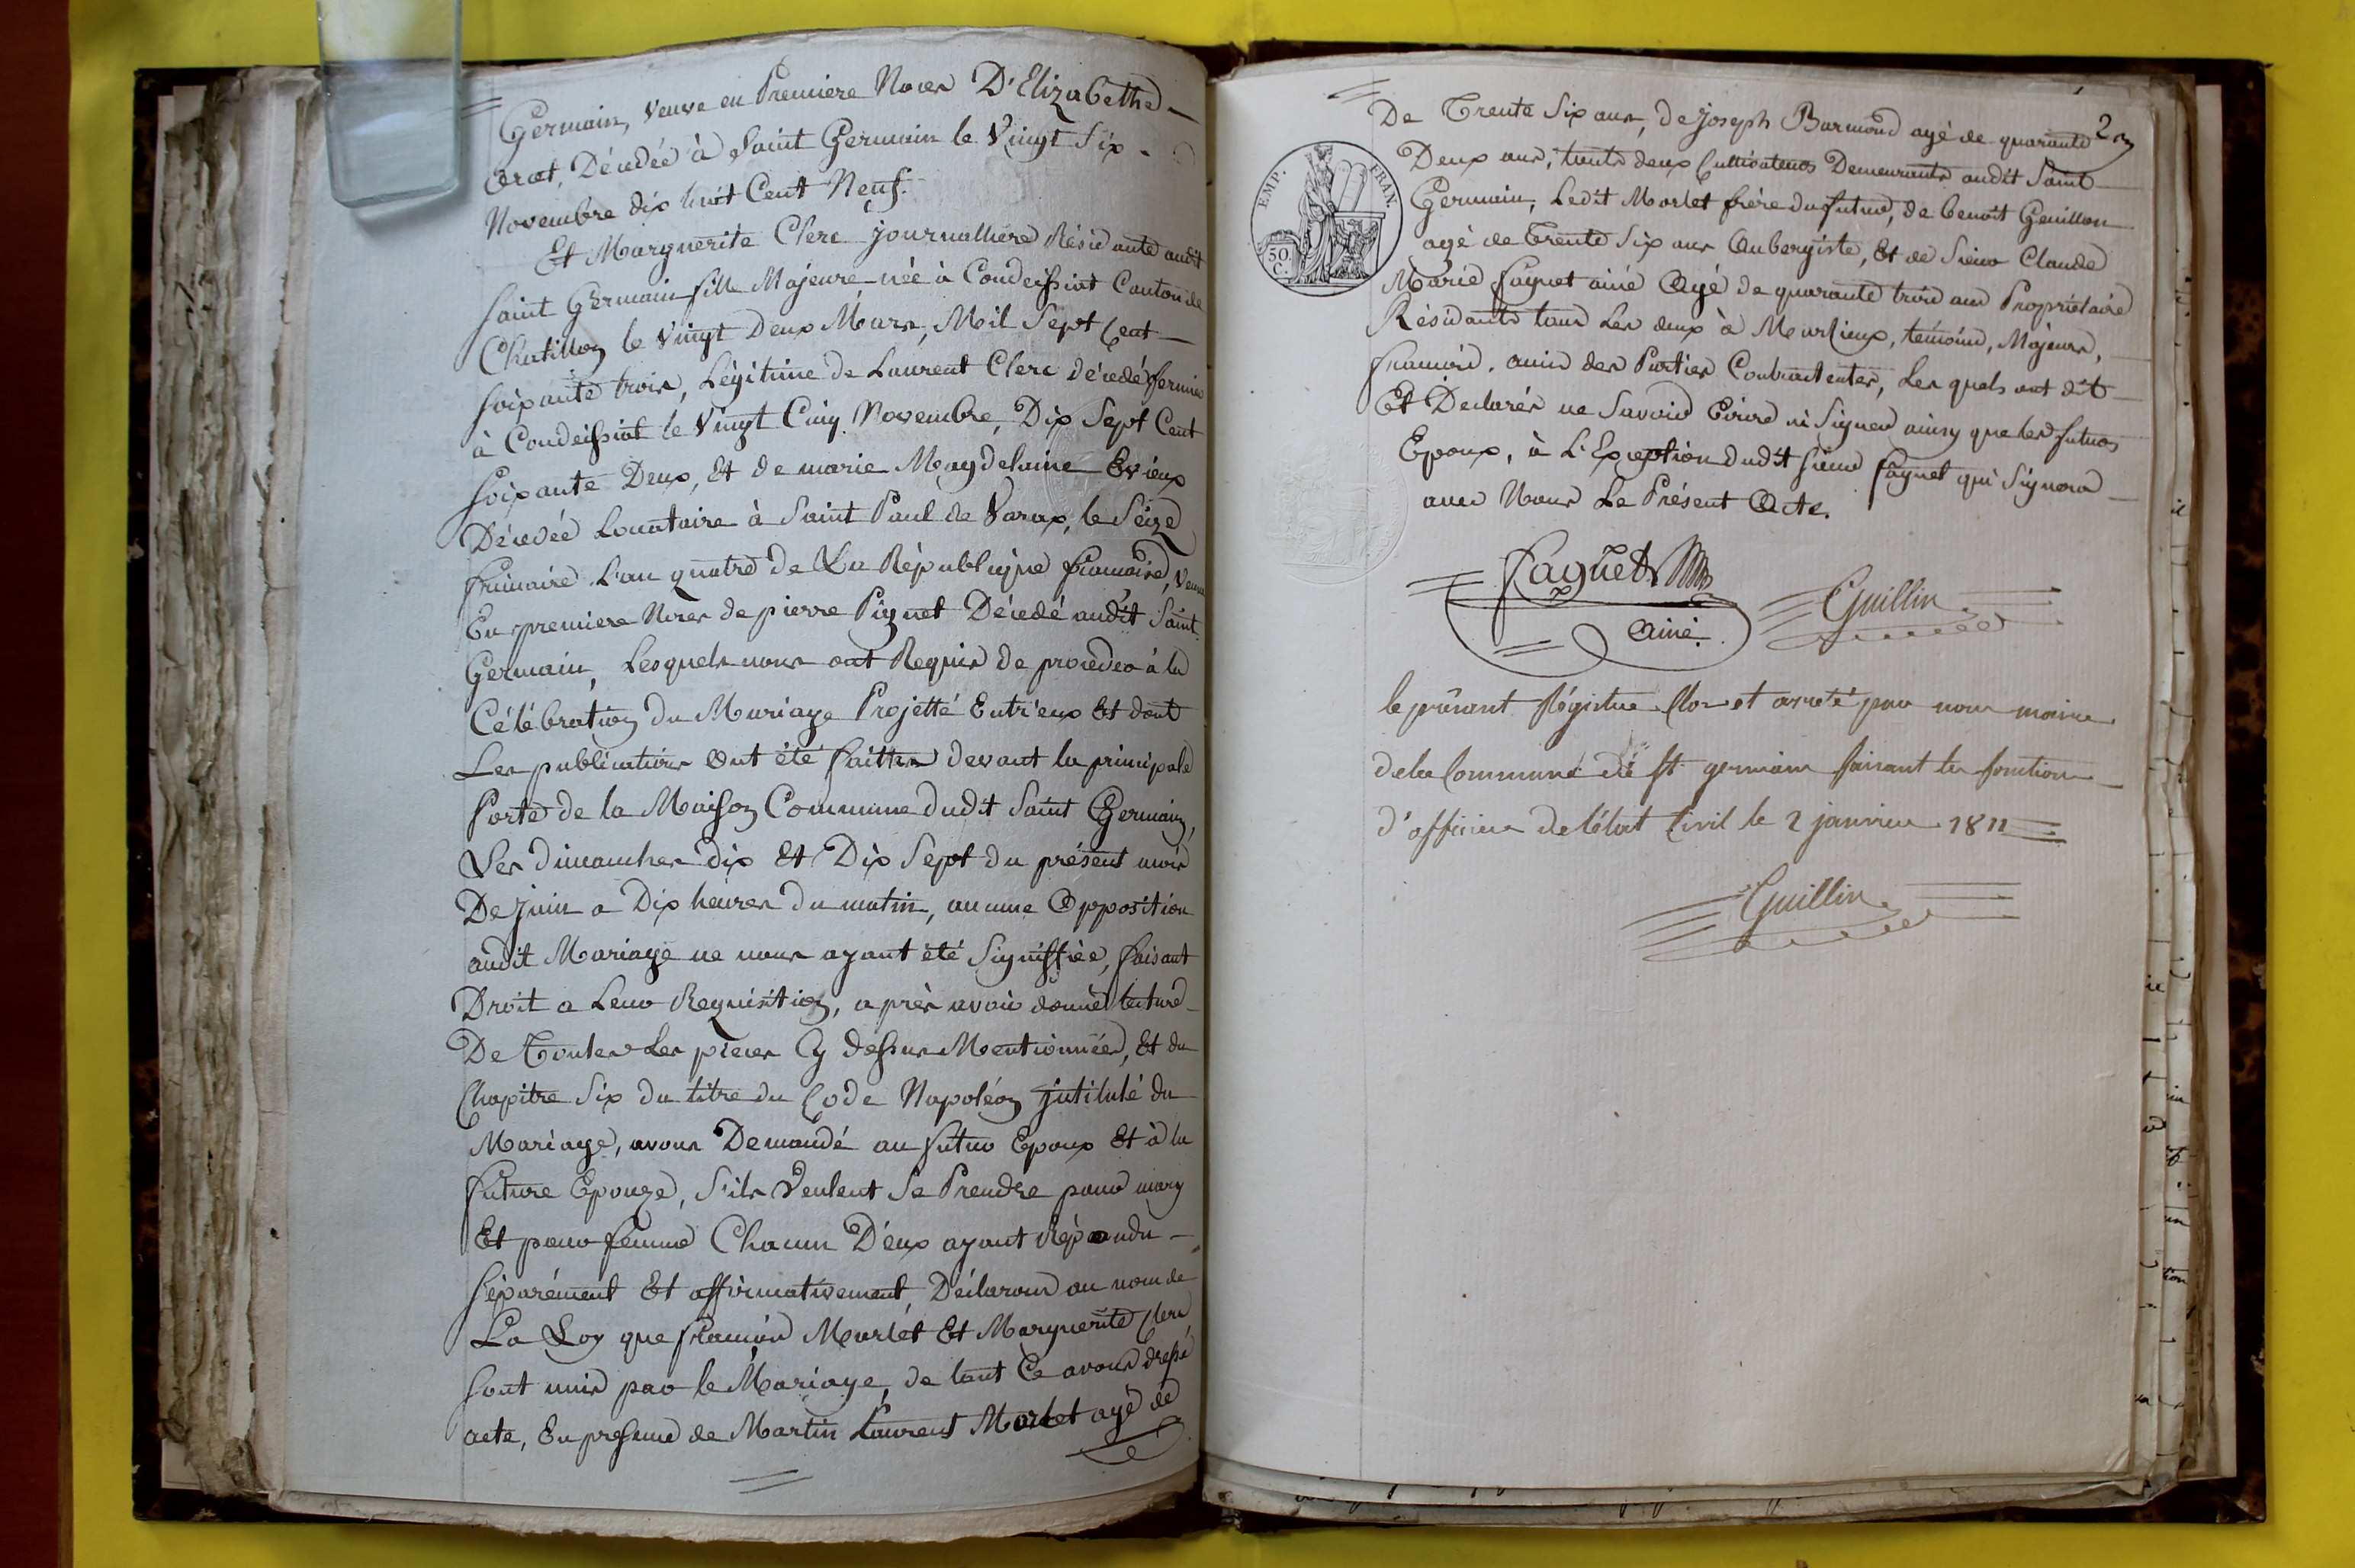 Germain, veuve en Premiere Noces D'Elizabethe
Décédée à Saint Germain le Vingt Six
Novembre dix huit Cent Neuf.
Et Marguerite Clerc journalliere Résidante audit
Saint Germain fille Majeure née à Condeissiat Canton de
Chatillon le Vingt Deux Mars, Mil Sept Cent
Soixante trois, Légitime de Laurent Clerc décedé fermier
à Condeissiat le Vingt Cinq Novembre, Dix Sept Cent
Soixante Deux, Et de marie Magdelaine Evieux
Décédée Locataire à Saint Paul de Varax, le Seize
frimaire L'an quatre de La République francoise, Veuve
En premiere Noces de pierre Piquet Décédé audit Saint
Germain, Lesquels nous ont Requis de proceder à la
Célébration du Mariage Projetté Entr'eux Et dont
Les publications Ont été faittes devant la principale
Porte de la Maison Commune dudit Saint Germain,
Les dimanches dix Et Dix Sept du présent mois
De juin a Dix heures du matin, aucune Opposition
audit Mariage ne nous ayant été Signiffiée, faisant
Droit a Leur Requisition, après avoir donné lecture
De Toutes Les pieces Cy dessus Mentionnées, Et du
Chapitre Six du titre du Code Napoléon jntitulé du
Mariage, avons Demandé au futur Epoux Et à la
future Epouze, S'ils Veulent Se Prendre pour mary
Et pour femme Chacun D'eux ayant Répondu
Séparément Et affirmativement, Déclarons au nom de
La Loy que francois Morlet Et Marguerite Clerc
Sont unis par le Mariage, de tout Ce avons dressé
acte, En presence de Martin Laurent Morlet agé de
2
De Trente Six ans, de Joseph Barmond agé de quarante
Deux ans, touts deux Cultivateurs Demeurants audit Saint
Germain, Ledit Morlet frère du futur, de benoit Genillon
agé de Trente Six ans Aubergiste, Et de Sieur Claude
Marie faguet ainé Agé de quarante trois ans Propriétaire
Résidants tous Les deux à Marlieux, témoins, Majeurs,
francois, amis des Parties Contractantes, Les quels ont dit
Et Déclarés ne Savoir Ecrire ni Signer ainsy que les futurs
Epoux, à L'Exception dudit Sieur faguet qui Signera
avec Nous Le Présent Acte.
EMP. FRAN.
50. C.
faguet
Ainé
Guillin
le présent Régistre Clos et arreté par nous maire
de la Commune de St. germain faisant les fonctions
d'officier de l'état Civil le 2 janvier 1811
Guillin